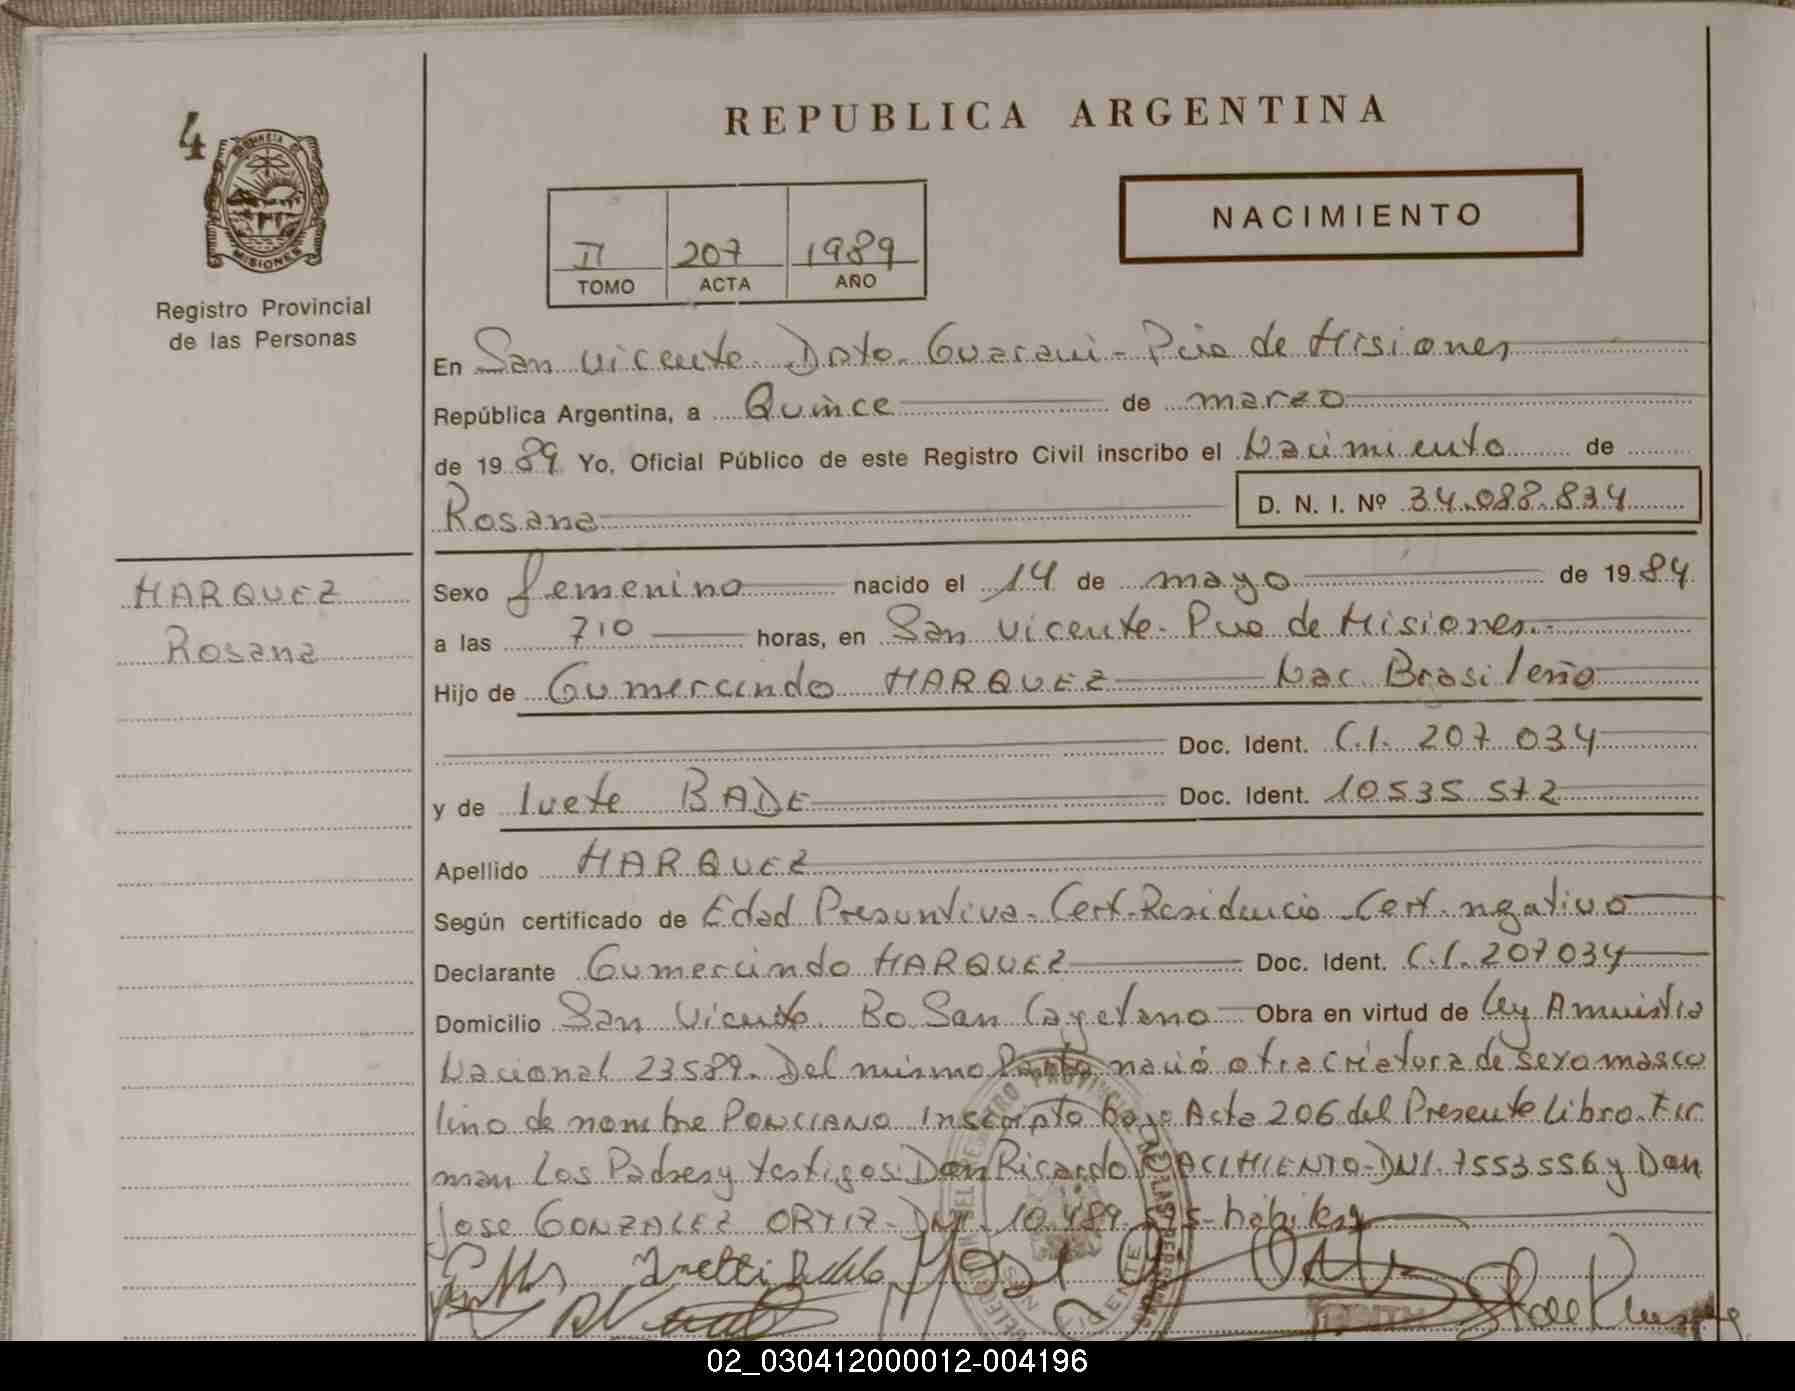 REPUBLICA ARGENTINA
4
PROVINCIA DE
MISIONES
Registro Provincial
de las Personas
II 207 1989
TOMO ACTA AÑO
NACIMIENTO
En San Vicente Dpto. Guarani - Pcia de Misiones
República Argentina, a Quince de marzo
de 1989 Yo, Oficial Público de este Registro Civil inscribo el Nacimiento de
Rosana D. N. I. Nº 34.088.834
MARQUEZ
Rosana
Sexo femenino nacido el 14 de mayo de 1984
a las 710 horas, en San Vicente - Pcia de Misiones.
Hijo de Gumercindo MARQUEZ Nac. Brasileño
Doc. Ident. C.I. 207 034
y de Ivete BADE Doc. Ident. 10535 572
Apellido MARQUEZ
Según certificado de Edad Presuntiva - Cert. Residencia - Cert. negativo
Declarante Gumercindo MARQUEZ Doc. Ident. C.I. 207034
Domicilio San Vicente Bo San Cayetano Obra en virtud de Ley Amnistia
Nacional 23589. Del mismo Parto nació otra criatura de sexo mascu
lino de nombre PONCIANO Inscripto bajo Acta 206 del Presente Libro. Fir
man Los Padres y testigos: Don Ricardo NACIMIENTO - DNI. 7553556 y Don
Jose GONZALEZ ORTIZ - DNI. 10.489.595 - habiles
02_030412000012-004196